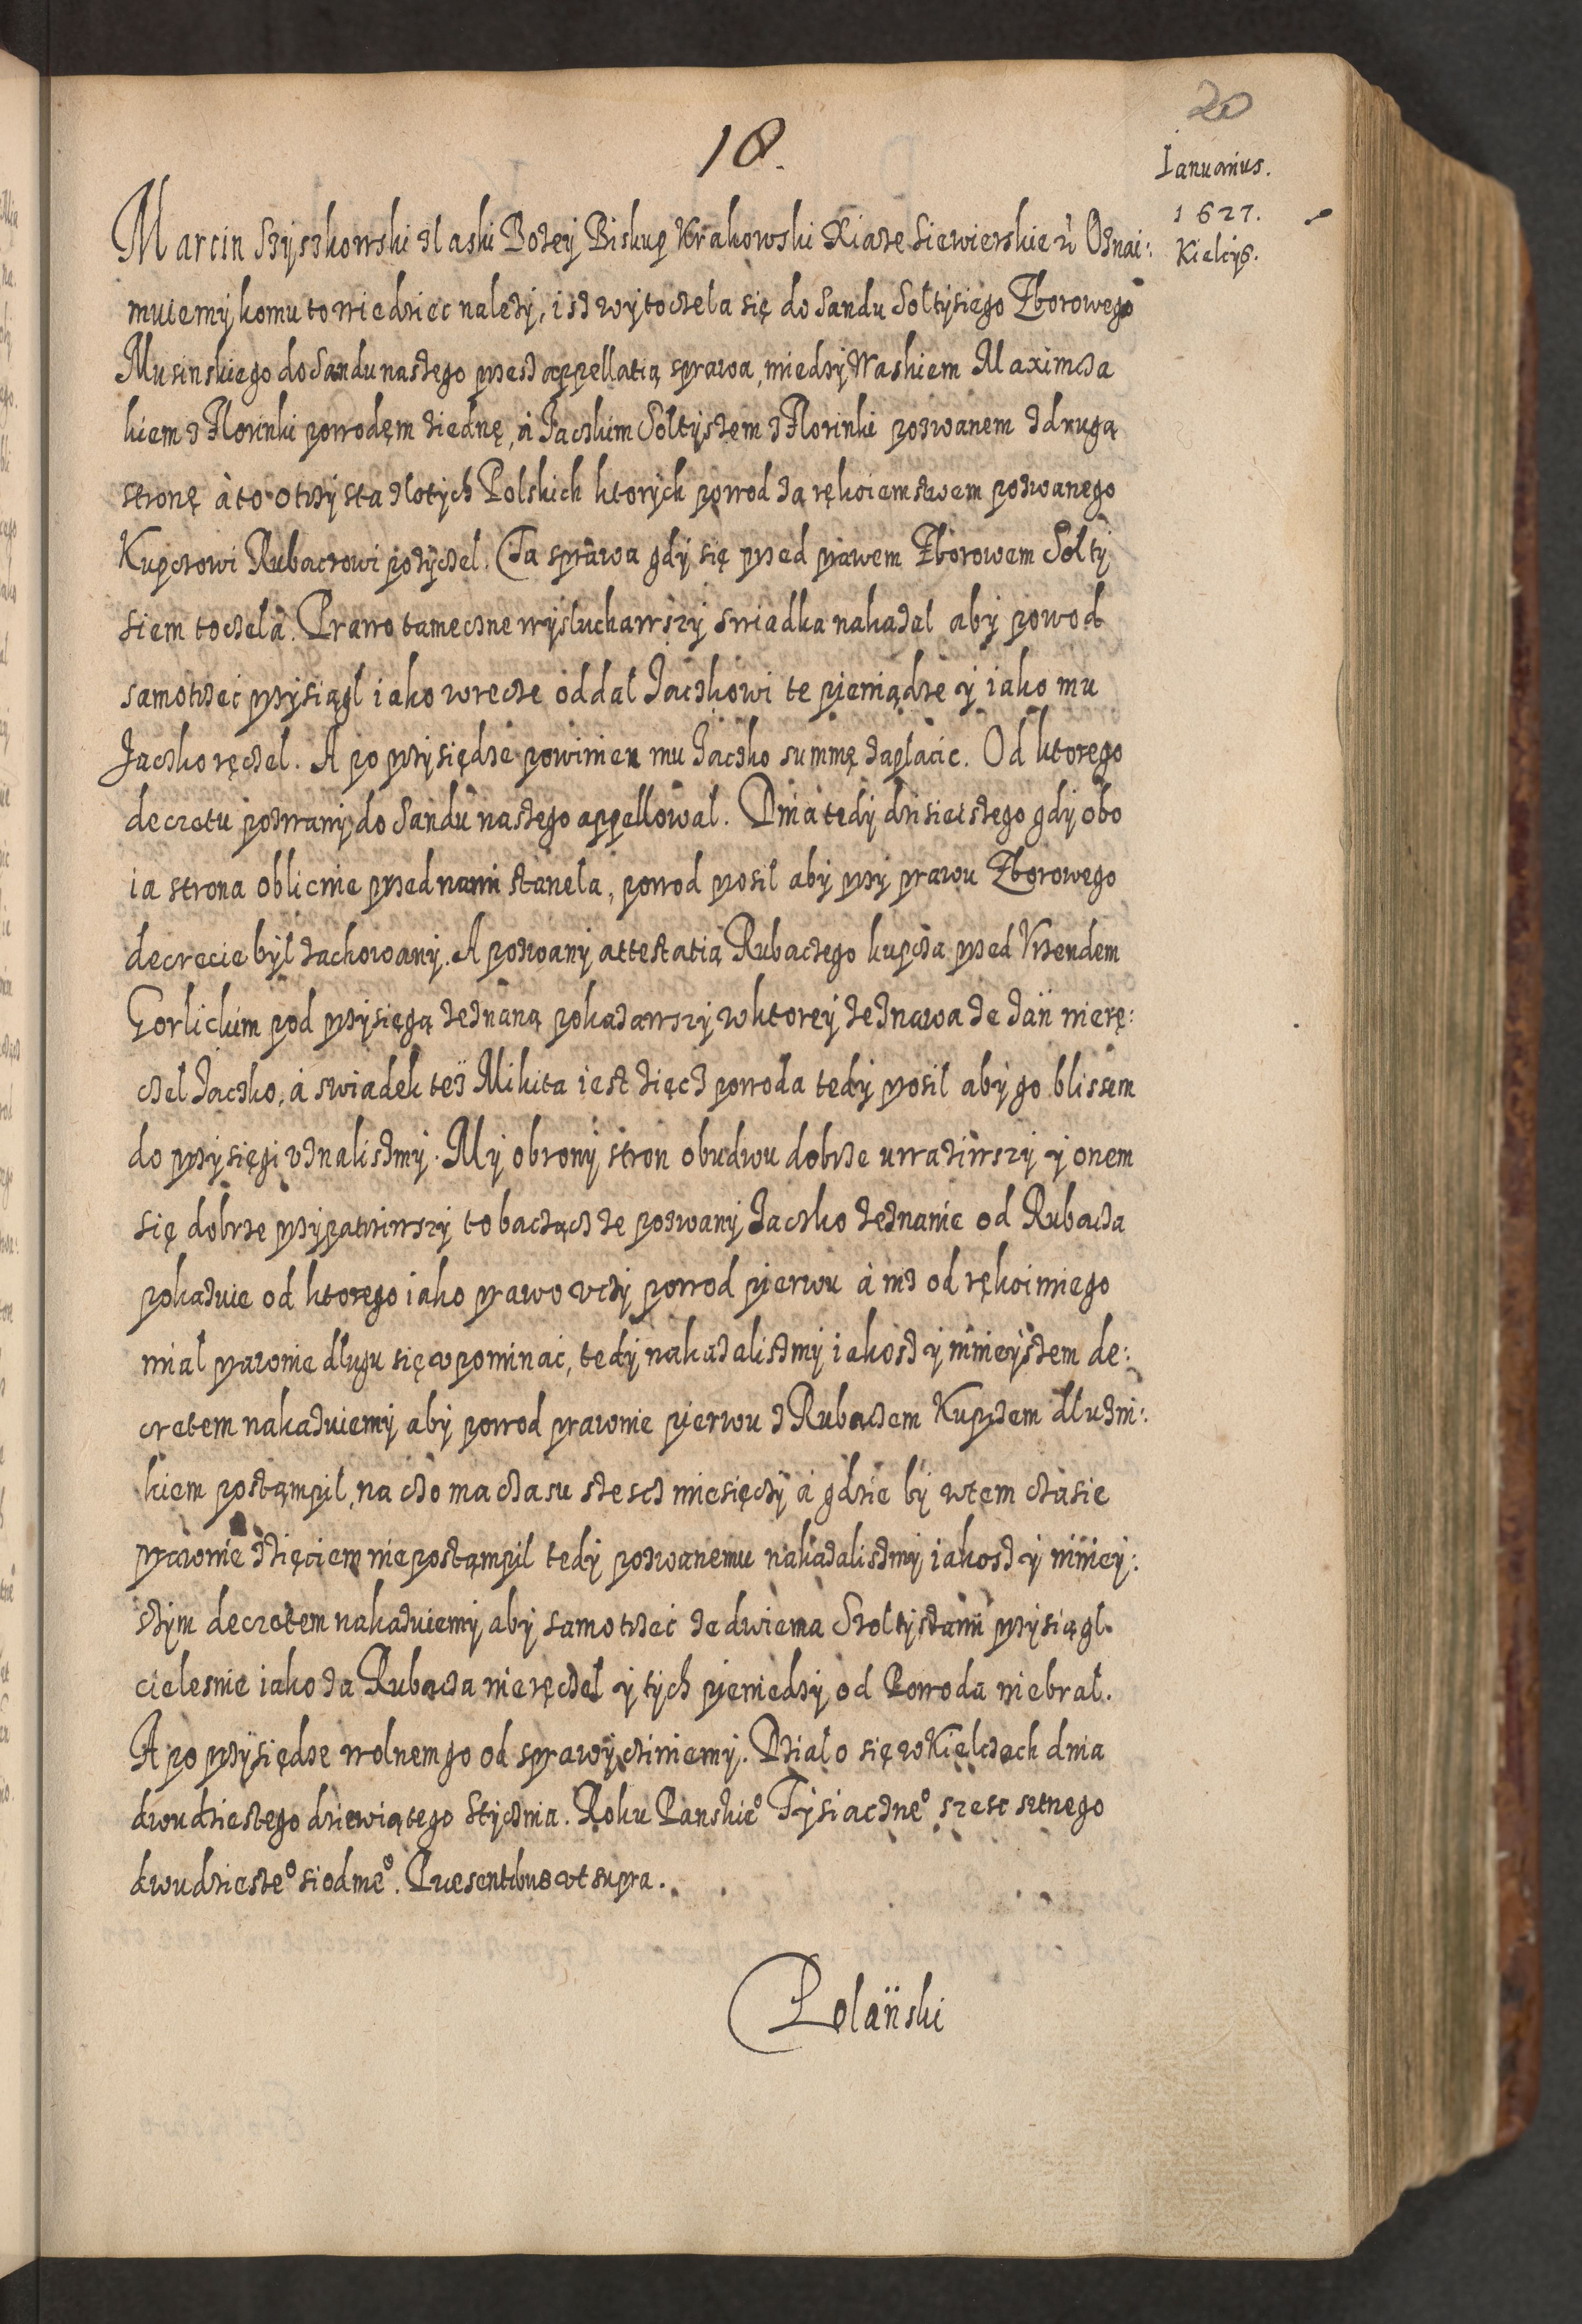 20
18.
Ianuarius.
1627.
Kielcys.
Marcin Szyszkowski z laski Bozey Biskup Krakowski Xiaze Siewierskie &c̀ Oznai:
muiemy komu to wiedziec nalezy, isz wytoczela się do Sandu Soltysiego Zborowego
Musinskiego do Sandu naszego przesz appellatią sprawa, miedzy Waskiem Maximcza
kiem z Florinki powodęm ziednę, á Jaczkim Soltyszem z Florinki pozwanem z drugą
stronę á to o trzy sta zlotych Polskich ktorych powod za rękoiemstwem pozwanego
Kupczowi Rubaczowi pożyczel. Ta sprawa gdy się przed prawem Zborowem Solty
siem toczela. Prawo tameczne wysluchawszy swiadka nakazal aby powod
samotrzeć przysiągl iako w recze oddal Jaczkowi te pieniądze y iako mu
Jaczko ręczel. A po przysiędze powinien mu Jaczko summę zaplacic. Od ktorego
decretu pozwany do Sandu naszego appellowal. Dnia tedy dzisieiszego gdy obo
ia strona oblicnie przed nami stanela, powod prosil aby przy prawu Zborowego
decrecie byl zachowany. A pozwany attestatią Rubaczego kupcza przed Vrzendem
Gorlickim pod przysięgą zeznaną pokazawszy w ktorey zeznawa że zań nierę:
czel Jaczko, á swiadek też Mikita iest zięcz powoda tedy prosil aby go blissem
do przysięgi vznalismy. My obrony stron obudwu dobrze uwaziwszy y onem
się dobrze przypatriwszy to bacząc że pozwany Jaczko zeznanie od Rubacza
pokazuie od ktorego iako prawo vczy powod pierwu á nisz od rękoimiego
mial prawnie dlugu się vpominać, tedy nakazalismy iakosz y ninieyszem de:
cretem nakazuiemy aby powod prawnie pierwu z Rubaczem Kupczem dluzni:
kiem postąmpil, na czo ma czasu szescz miesięczy á gdzie by w tem czasie
prawnie z zięciem nie postąmpil tedy pozwanemu nakazalismy iakosz y niniey:
szym decretem nakazuiemy aby samotrzeć ze dwiema Szoltyszami przysiągl.
cielesnie iako za Rubacza nie ręczel y tych pieniedzy od Powoda niebral.
A po przysiędze wolnem go od sprawy cziniemy. Dzialo się w Kielczech dnia
dwudziestego dziewiątego Stycznia. Roku Panskie° Tysiaczne° szesc setnego
dwudzieste° siodme°. Presentibus vt supra.
Polański